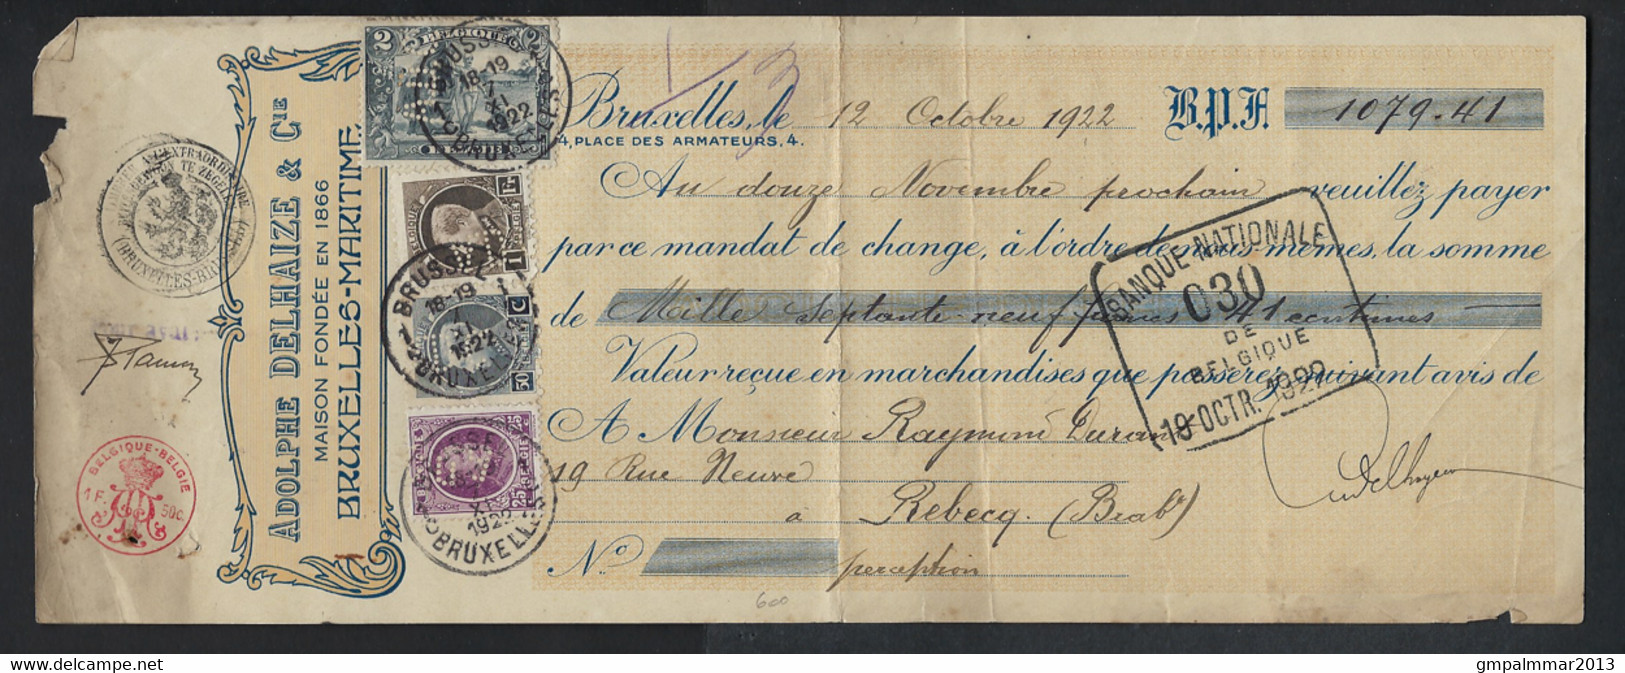 ADOLPHE DELHAIZE & Cie
MAISON FONDÉE EN 1866
BRUXELLES-MARITIME.
Bruxelles, le 12 Octobre 1922 B.P.F. 1079.41
4, PLACE DES ARMATEURS, 4.
Au douze Novembre prochain veuillez payer
par ce mandat de change, à l'ordre de nous mêmes, la somme
de Mille septante-neuf francs 41 centimes
Valeur reçue en marchandises que passerez suivant avis de
A Monsieur Raymond Durant
19 Rue Neuve
à Rebecq. (Brabt)
No perception
BANQUE NATIONALE
030
DE
BELGIQUE
19 OCTR. 1922
BELGIQUE-BELGIË
1 F. 50c.
(BRUXELLES-BRUSSEL)
2 BELGIQUE 2
18-19
XI
1922
BRUXELLES
1 BELGIQUE
BRUSSEL 1
18-19
XI
1922
1 BRUXELLES
50
25 25
25 25
1922
BRUXELLES
600
delcampe.net
gmpalmmar2013